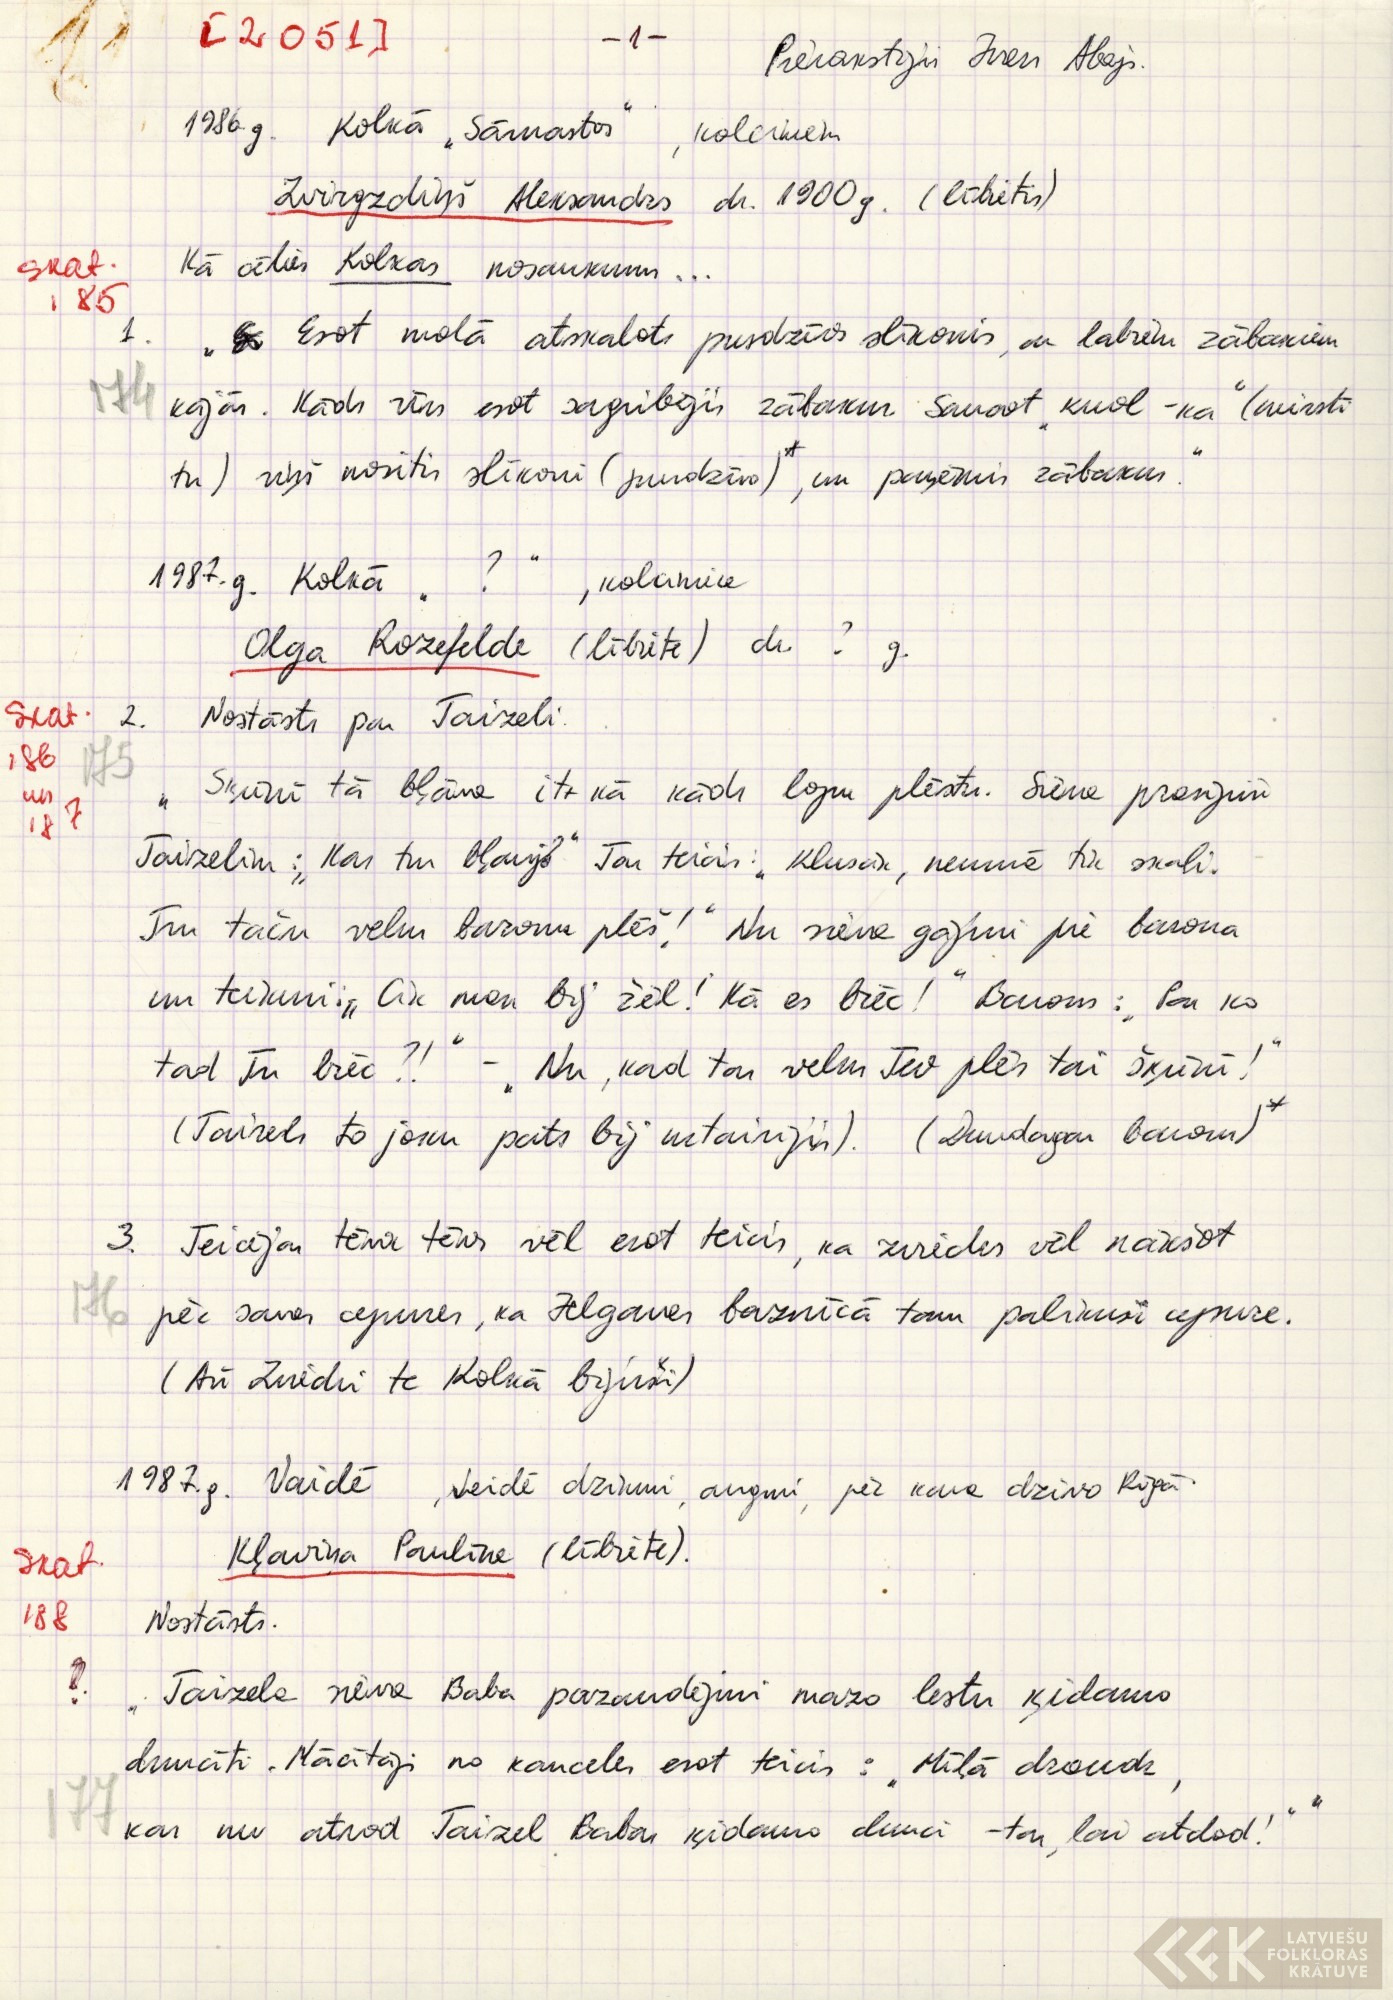 [2051]
-1-
Pierakstījis Ivars Abajs.
1986.g. Kolkā „Sārnastos“, kolcinieks
Zvirgzdiņš Aleksandrs dz. 1900g. (lībietis)
skat.
185
Kā cēlies Kolkas nosaukums...
1. „Esot malā atskalots pusdzīvs slīkonis, ar labiem zābakiem
174
kājās. Kāds vīrs esot sagribējis zābakus. Sauкot „kuol -ka“ (mirsti
tu) viņš nositis slīkoni (pusdzīvo)*, un paņēmis zābakus.“
1987.g. Kolkā „ ? “, kolcniece
Olga Rozefelde (lībiete) dz. ? g.
skat.
186
un
187
2. Nostāsts par Taizeli.
175
„Šķūnī tā bļāva it kā kāds lopu plēstu. Sieva prasījusi
Taizelim: „Kas tur bļauj?“ Tas teicis: „Klusāk, nerunā tik skaļi.
Tur taču velns baronu plēš!“ Nu sieva gājusi pie barona
un teikusi: „Cik man bij žēl! Kā es brēc!“ Barons: „Par ko
tad Tu brēc?!“ - „Nu, kad tas velns Tev plēs tai šķūnī!“
(Taizels to joku pats bij uztaisījis). (Dundagas barons)*
3. Teicējas tēva tēvs vēl esot teicis, ka zviedrs vēl nākšot
176
pēc savas cepures, ka Jelgavas baznīcā tam palikusi cepure.
(Arī Zviedri te Kolkā bijuši)
1987.g. Vaidē, Veidē dzimusi, augusi, pēc kara dzīvo Rīgā.
Kļaviņa Paulīne (lībiete).
skat.
188
Nostāsts.
?
„Taizela sieva Baba pazaudējusi mazo lestu ķidamo
duncīti. Mācītājs no kanceles esot teicis: „Mīļā draudz,
177
kas nu atrod Taizel Babas ķidamo dunci -tas, lai atdod!““
LATVIEŠU
FOLKLORAS
KRĀTUVE